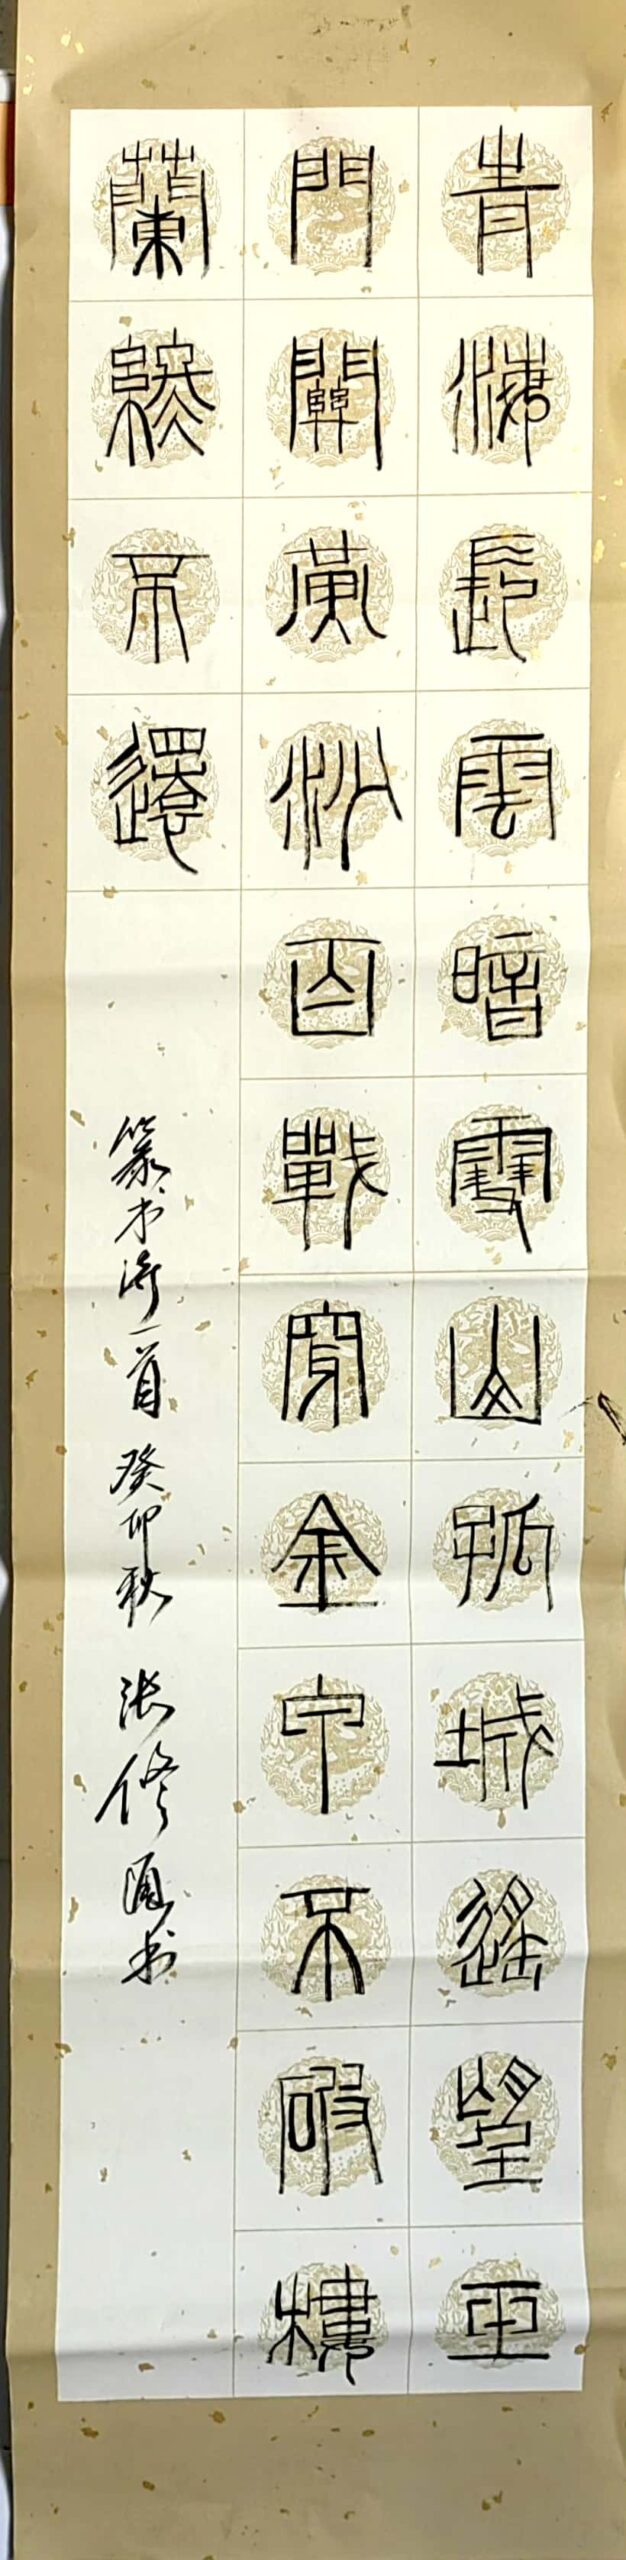 青海長雲暗雪山孤城遙望玉
門關黃沙百戰穿金甲不破樓
蘭終不還
篆书诗一首 癸卯秋 张修书